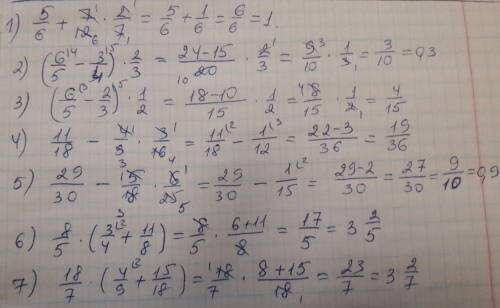 1) 5/6 + 7/12 · 2/7 = 5/6 + 1/6 = 6/6 = 1.
2) (6/5 − 3/4) · 2/3 = (24−15)/20 · 2/3 = 9/10 · 1/3 = 3/10 = 0,3
3) (6/5 − 2/3) · 1/2 = (18−10)/15 · 1/2 = 8/15 · 1/2 = 4/15
4) 11/18 − 4/9 · 3/16 = 11/18 − 1/12 = (22−3)/36 = 19/36
5) 29/30 − 5/18 · 6/25 = 29/30 − 1/15 = (29−2)/30 = 27/30 = 9/10 = 0,9
6) 8/5 · (3/4 + 11/8) = 8/5 · (6+11)/8 = 17/5 = 3 2/5
7) 18/7 · (4/9 + 15/18) = 18/7 · (8+15)/18 = 23/7 = 3 2/7